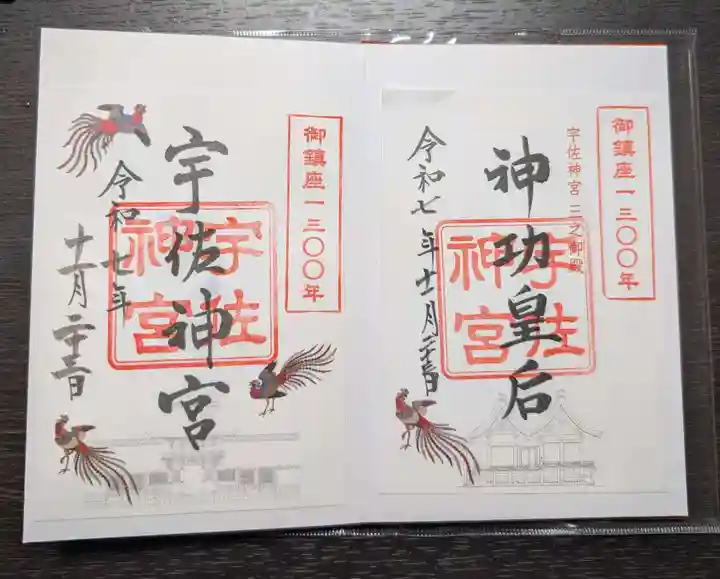 御鎮座一三〇〇年
宇佐神宮
宇佐
神宮
令和七年
十一月二十三日
御鎮座一三〇〇年
宇佐神宮 三之御殿
神功皇后
宇佐
神宮
令和七年十一月二十三日